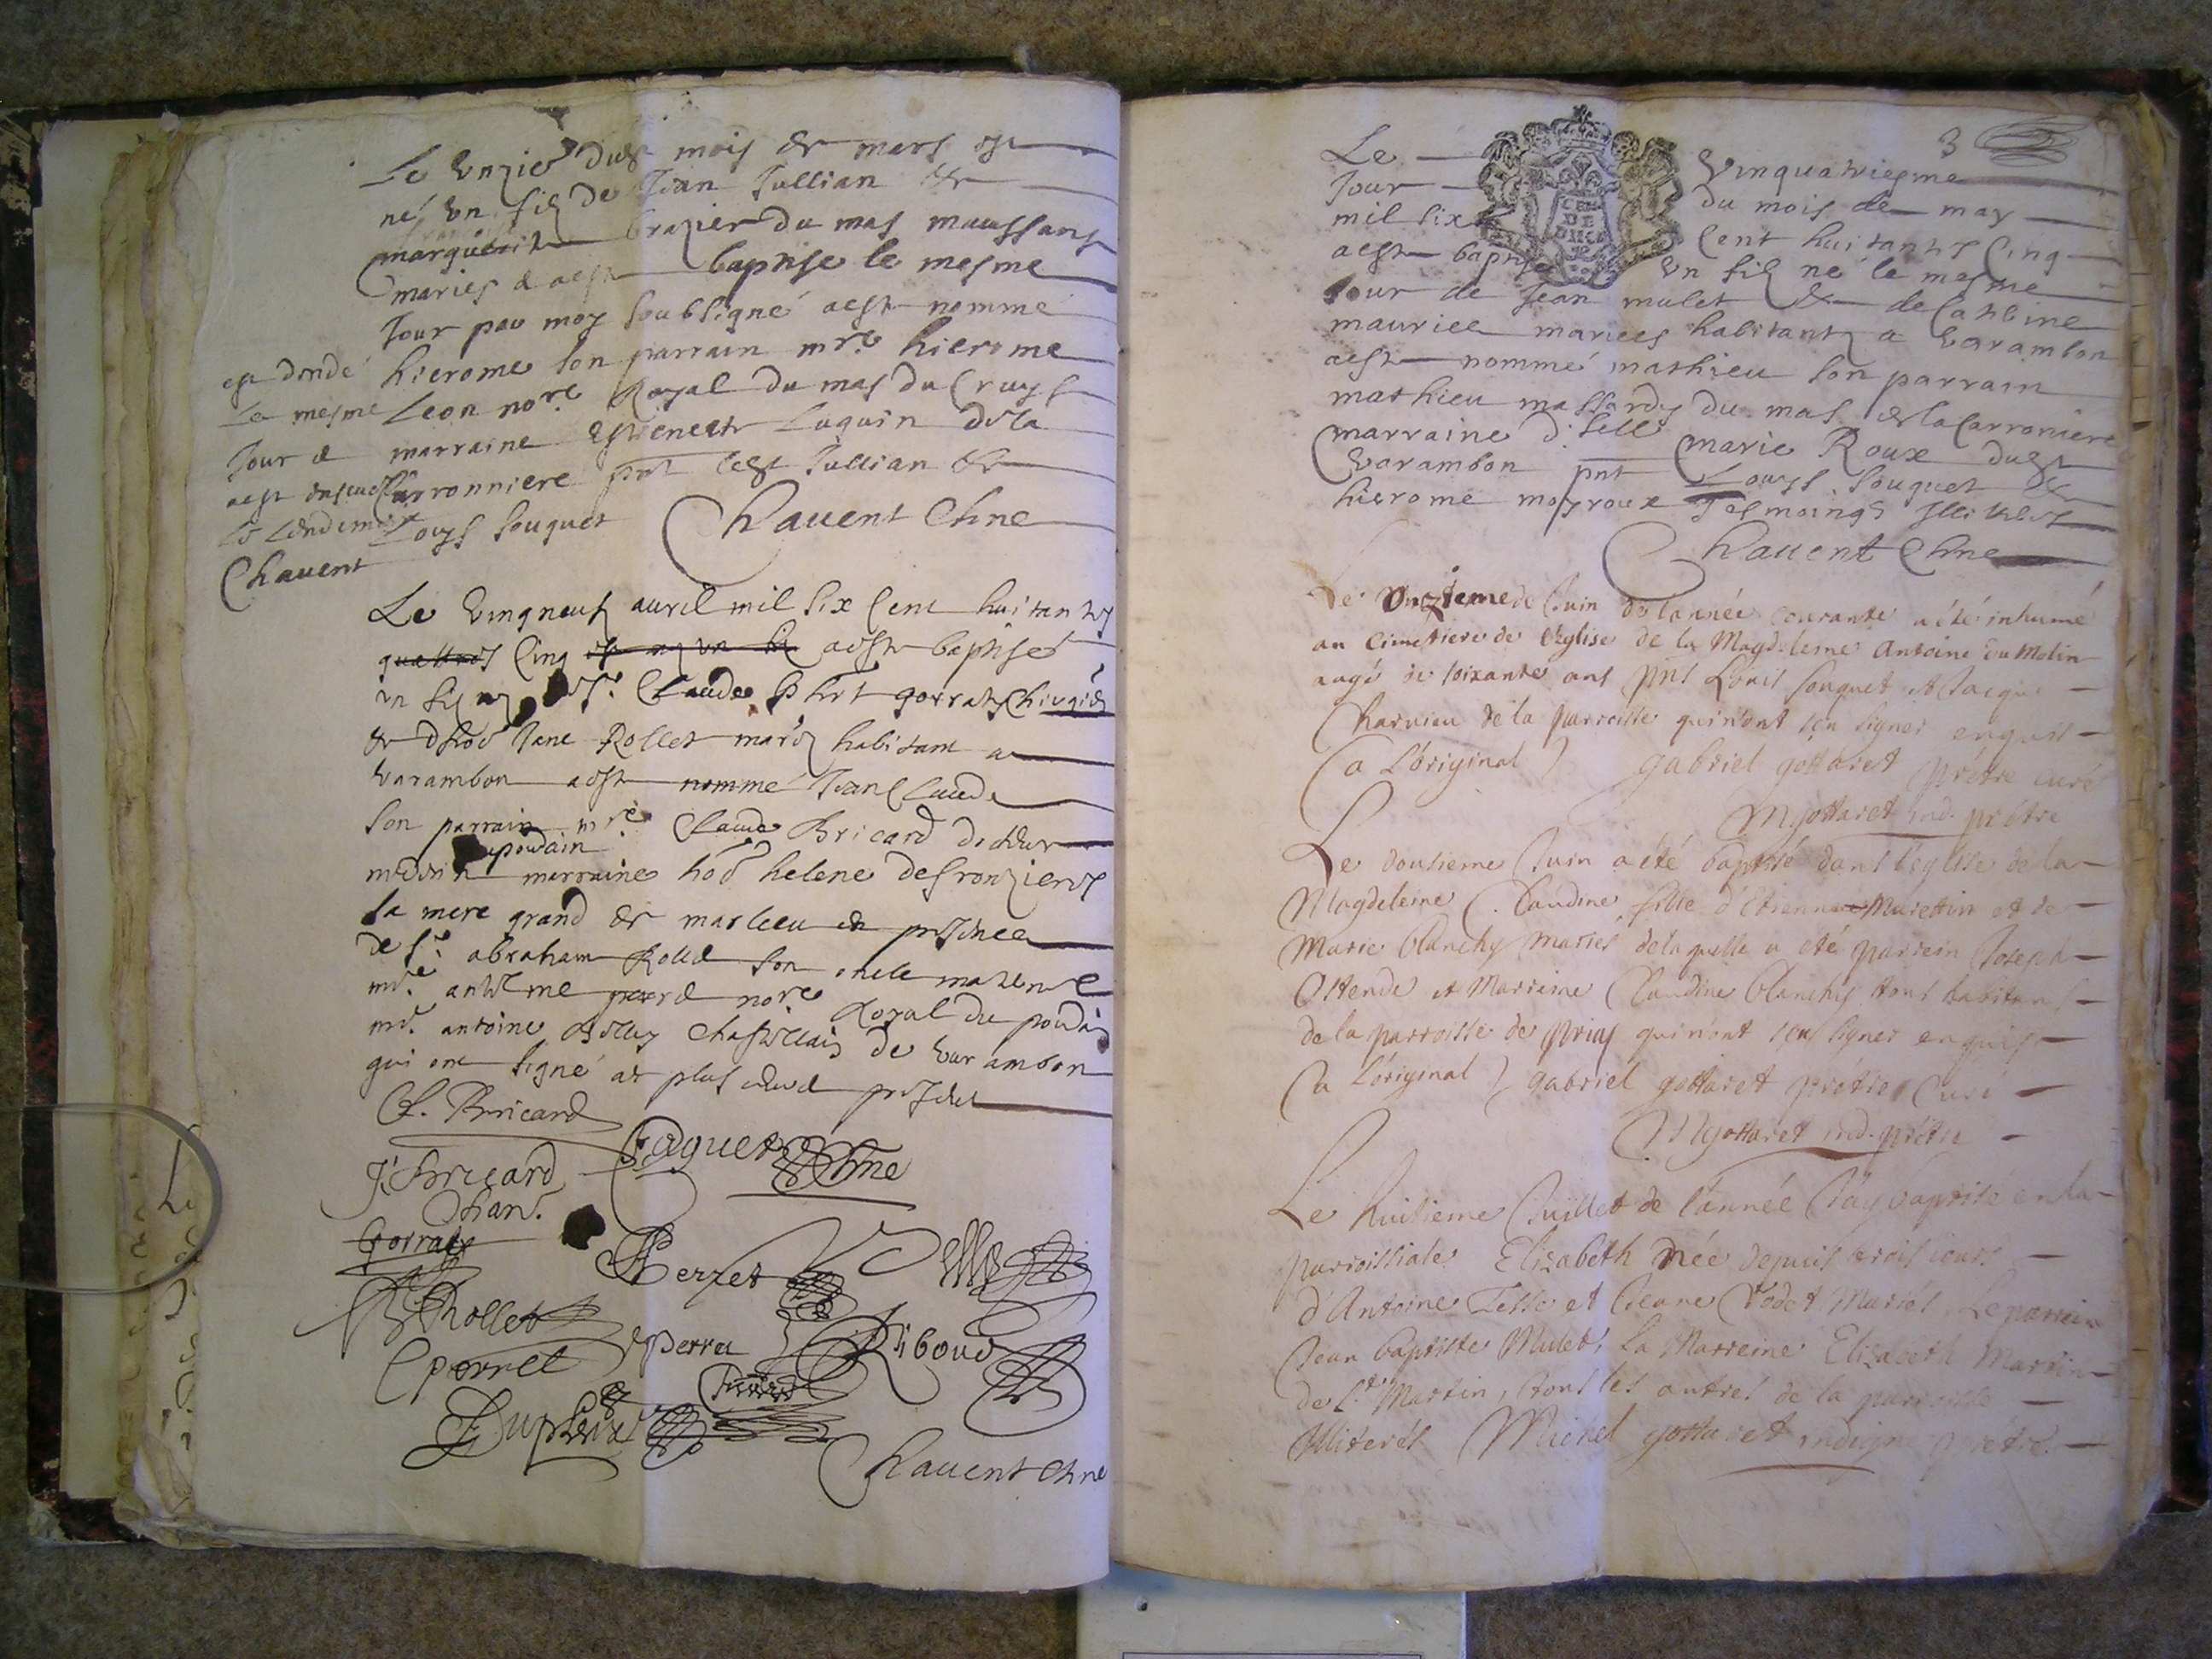 Le Unzie dudt mois de mars est
né un filz de Jean Jullian &
marguerite brazier du mas maussang
maries & aest baptise le mesme
Jour par moy soubsigné aest nomme
hierome son parrain mre hierome
Leon nore Royal du mas du Cruys
marraine Estienette Luquin de la
Carronniere pnt ledt Jullian &
Louys souquet Chavent Chne
est decidé
le mesme
Jour &
aest
le lendemain
Chavent
Le vingneuf avril mil six cent huitante
quattres Cinq aeste baptisé
un filz Sr. Claude gorrat Chirugie
& Jane Rollet mariez habitant a
varambon aest nommé Jean Claude
son parrain mre Claude Bricard docteur
poudain
medecin marraine helene desronzieres
sa mere grand & marleeu en presence
de Sr. abraham Rollet son oncle maternel
mre. anthelme perret nore Royal du poudain
mre. antoine Chastellain de varambon
qui ont signé
Cl. Bricard
Paquet Chne
J. Bricard
Chan.
Gorrat
Perret
Rollet
Cperret
perret
Riboud
Chavent Chne
3
Le vinquatriesme
Jour du mois de may
mil six Cent huitante Cinq
aeste baptise un filz né le mesme
Jour de Jean mulet & de Catherine
mauriee mariees habitantz a varambon
aeste nommé mathieu son parrain
mathieu massardy du mas de la Carroniere
marraine d. lell marie Roux dudt
varambon pnt Louys souquet &
hierome moyroux tesmoings Illiteres
Chavent Chne
Le Onzieme de Juin de lannée courante a été inhumé
au Cimetiere de l'Eglise de la Magdeleine Antoine du Molin
aagé de soixante ans pnt Louis souquet et Jacque
Charvieu de la parroisse qui n'ont sçu signer enquis
(a L'original) gabriel gottaret prétre curé
M. gottaret ind. prétre
Le dousieme Juin a été baptisé dans l'eglise de la
Magdeleine Claudine fille d'Etienne Murettin et de
Marie blanchy mariés de laquelle a été parrein Joseph
Ostende et Marreine Claudine blanchy tous habitans
de la parroisse de Priay qui n'ont sçu signer enquis
(a L'original) gabriel gottaret prétre Curé
M gottaret ind. prétre
Le huitieme Juillet de l'année J'ay baptisé en la
parroissiale Elizabeth née depuis trois jours
d'Antoine Tesse et Jeane Vodet Mariés Le parrein
Jean baptiste Mulet, La Marreine Elizabeth Martin
de St Martin, tous les autres de la parroisse
Illiterés Michel gottaret indigne prétre.